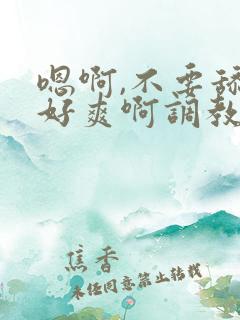 嗯啊,不要舔
好爽啊調教
焦香
未经同意禁止转载